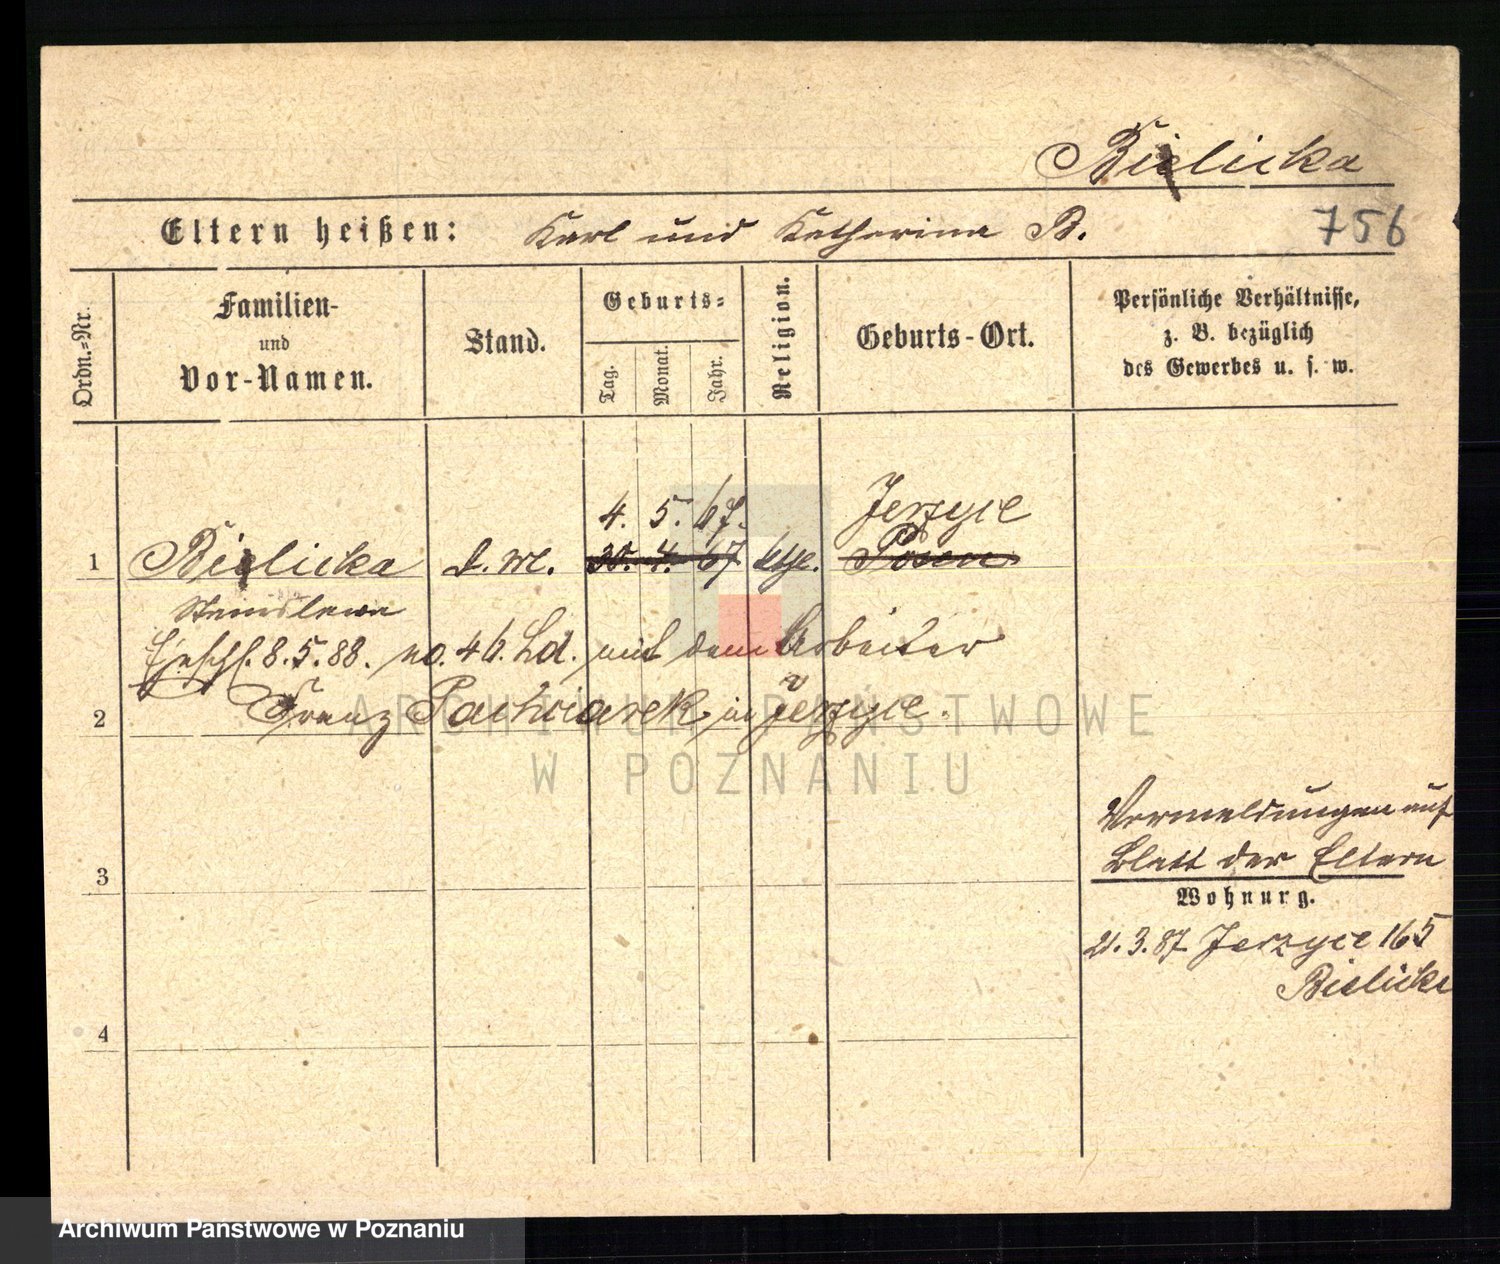 Bielicka
Eltern heißen: Karl und Katharina B.
756
Ordn.-Nr.
Familien-
und
Vor-Namen.
Stand.
Geburts-
Tag.
Monat.
Jahr.
Religion.
Geburts-Ort.
Persönliche Verhältnisse,
z. B. bezüglich
des Gewerbes u. s. w.
4. 5. 67. Jerzyce
1 Bielicka 30. 4. 67 kth. Posen
Stanislawa
Eheschl. 8. 5. 88. no. 46. Ld. mit dem Arbeiter
2 Franz Pachciarek in Jerzyce.
ARCHIWUM PAŃSTWOWE
W POZNANIU
Vormeldungen auf
3 Blatt der Eltern
Wohnung.
21. 3. 87. Jerzyce 165
Bielicki
4
Archiwum Państwowe w Poznaniu